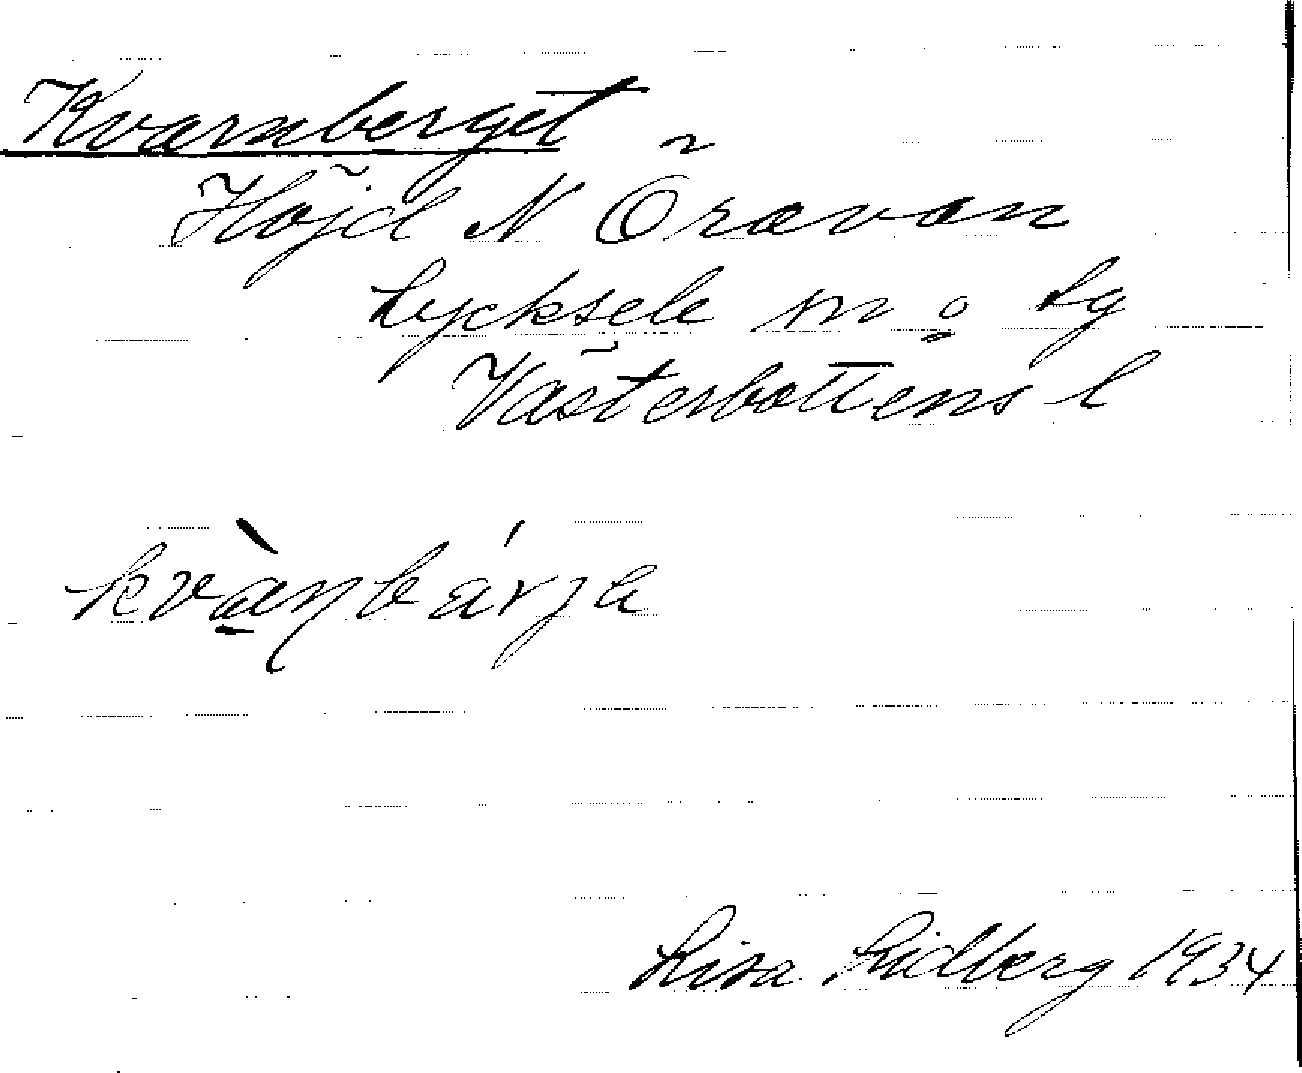 Kvarnberget
Höjd N Öravan
Lycksele m o lg
Västerbottens l
kvàɳbárjə
Lisa Lidberg 1934